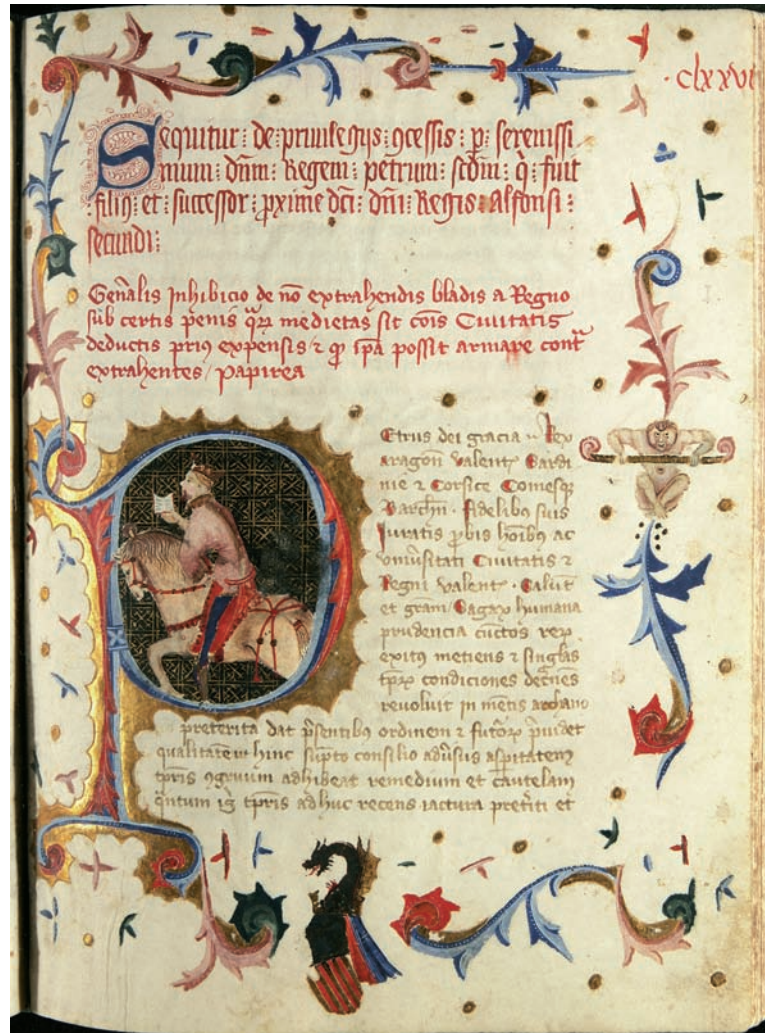 ·clxxvi
Sequitur: de: priuilegijs: ɔcessis: p: serenissi
mum: dnm: Regem: petrum: scdm: q̇: fuit
filiꝯ: et: successor: pxime dci: dni: Regis: Alfonsi:
secundi:
Gen̄alis Inhibicio de nō extrahendis bladis a Regno
sub certis penis q̄ꝝ medietas sit cōis Ciuitatis
deductis priꝯ expensis ⁊ ꝙ ip̄a possit armare cont̄
extrahentes / papirea
Petrus dei gracia Rex
aragon̄ valent̄ Sardi
nie ⁊ Corsice Comesqꝫ
Barchn̄ · fidelibꝯ suis
Iuratis ꝓbis hoībꝯ ac
vniūsitati Ciuitatis ⁊
Regni valent̄ · Salut̄
et gram̄ Sagax humana
prudencia cūctos reꝝ
exitꝯ metiens ⁊ singlas
tp̄ꝝ condiciones
reuoluit in mētis archano
preterita dat p̄sentibꝯ ordinem ⁊ futoꝝ p̄uidet
qualitatem hinc supto consilio adūsus aspitatem
tp̄ris ɔgruum adhibeat remedium et cautelam
q̄ntum iḡ tp̄ris adhuc recens iactura pret̄iti et